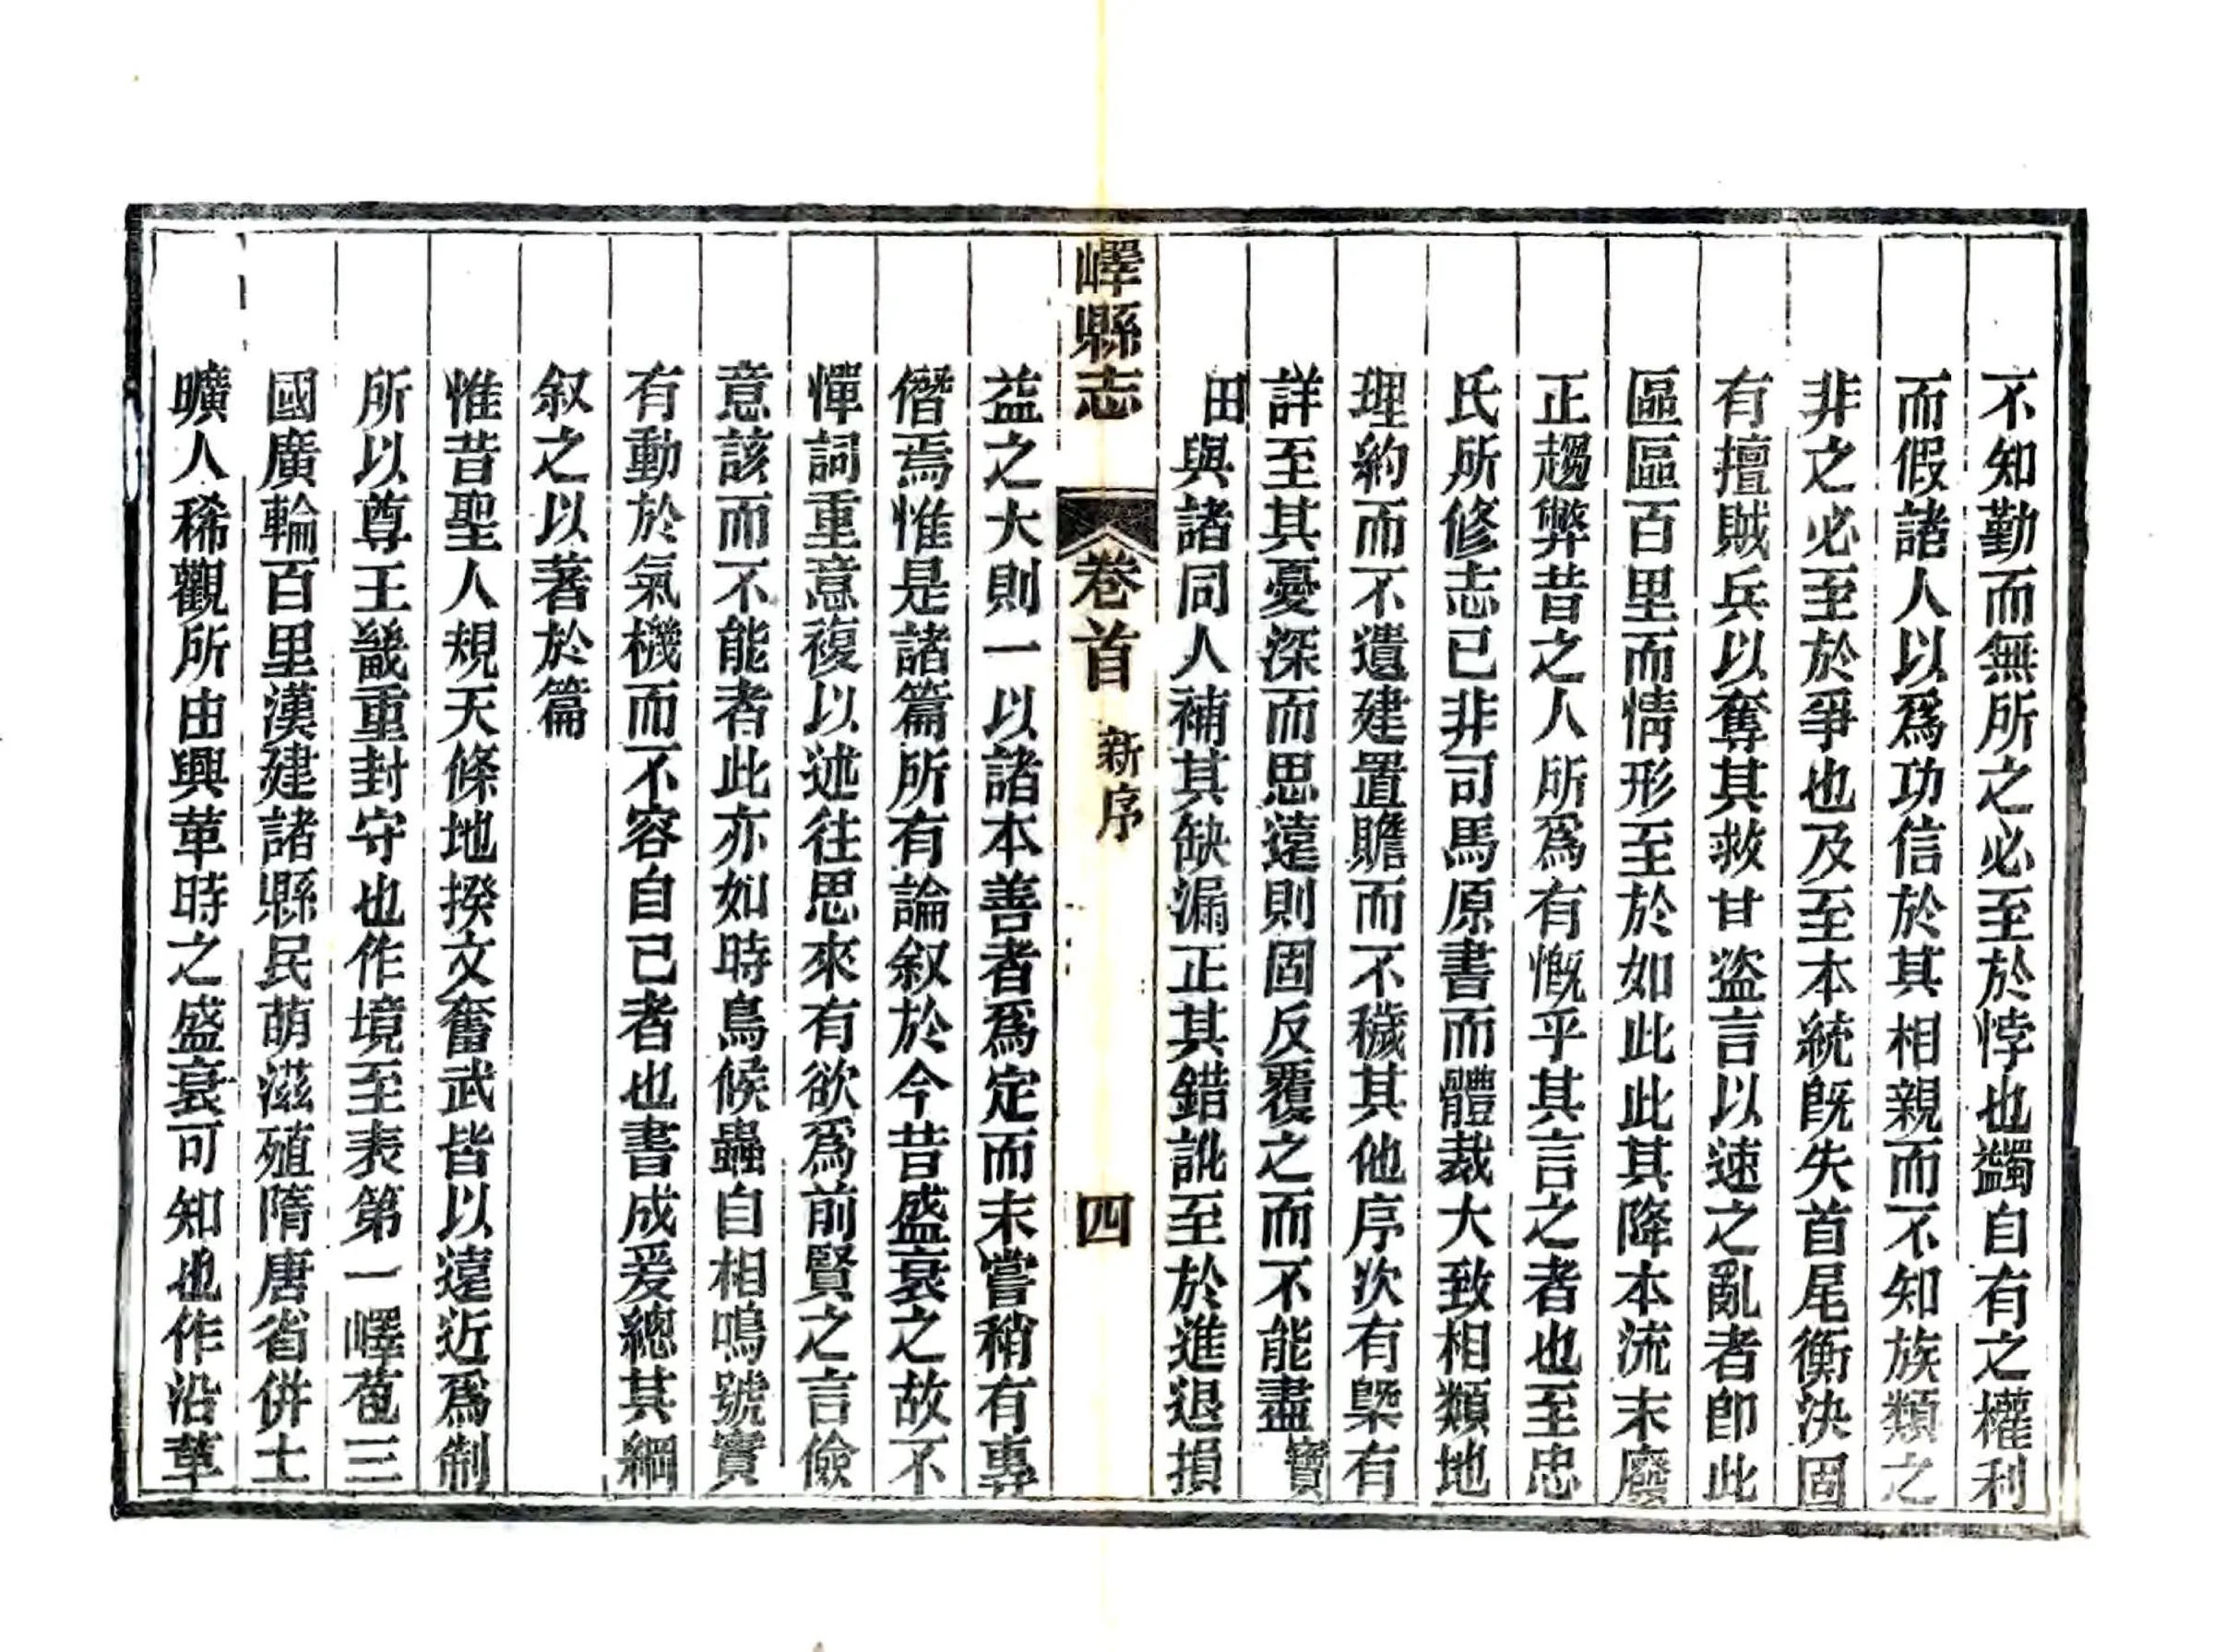 不知勤而無所之必至於悖也蠲自有之權利
而假諸人以爲功信於其相親而不知族類之
非之必至於爭也及至本統旣失首尾衡決固
有擅賊兵以奪其救甘盜言以速之亂者卽此
區區百里而情形至於如此此其降本流末廢
正趨弊昔之人所爲有慨乎其言之者也至忠
氏所修志已非司馬原書而體裁大致相類地
理約而不遺建置贍而不穢其他序次有槩有
詳至其憂深而思遠則固反覆之而不能盡寶
田與諸同人補其缺漏正其錯訛至於進退損
嶧縣志 卷首 新序 四
益之大則一以諸本善者爲定而未嘗稍有專
僭焉惟是諸篇所有論叙於今昔盛衰之故不
憚詞重意複以述往思來有欲爲前賢之言儉
意該而不能者此亦如時鳥候蟲自相鳴號實
有動於氣機而不容自已者也書成爰總其綱
叙之以著於篇
惟昔聖人規天條地揆文奮武皆以遠近爲制
所以尊王畿重封守也作境至表第一嶧苞三
國廣輪百里漢建諸縣民萌滋殖隋唐省併土
曠人稀觀所由興革時之盛衰可知也作沿革